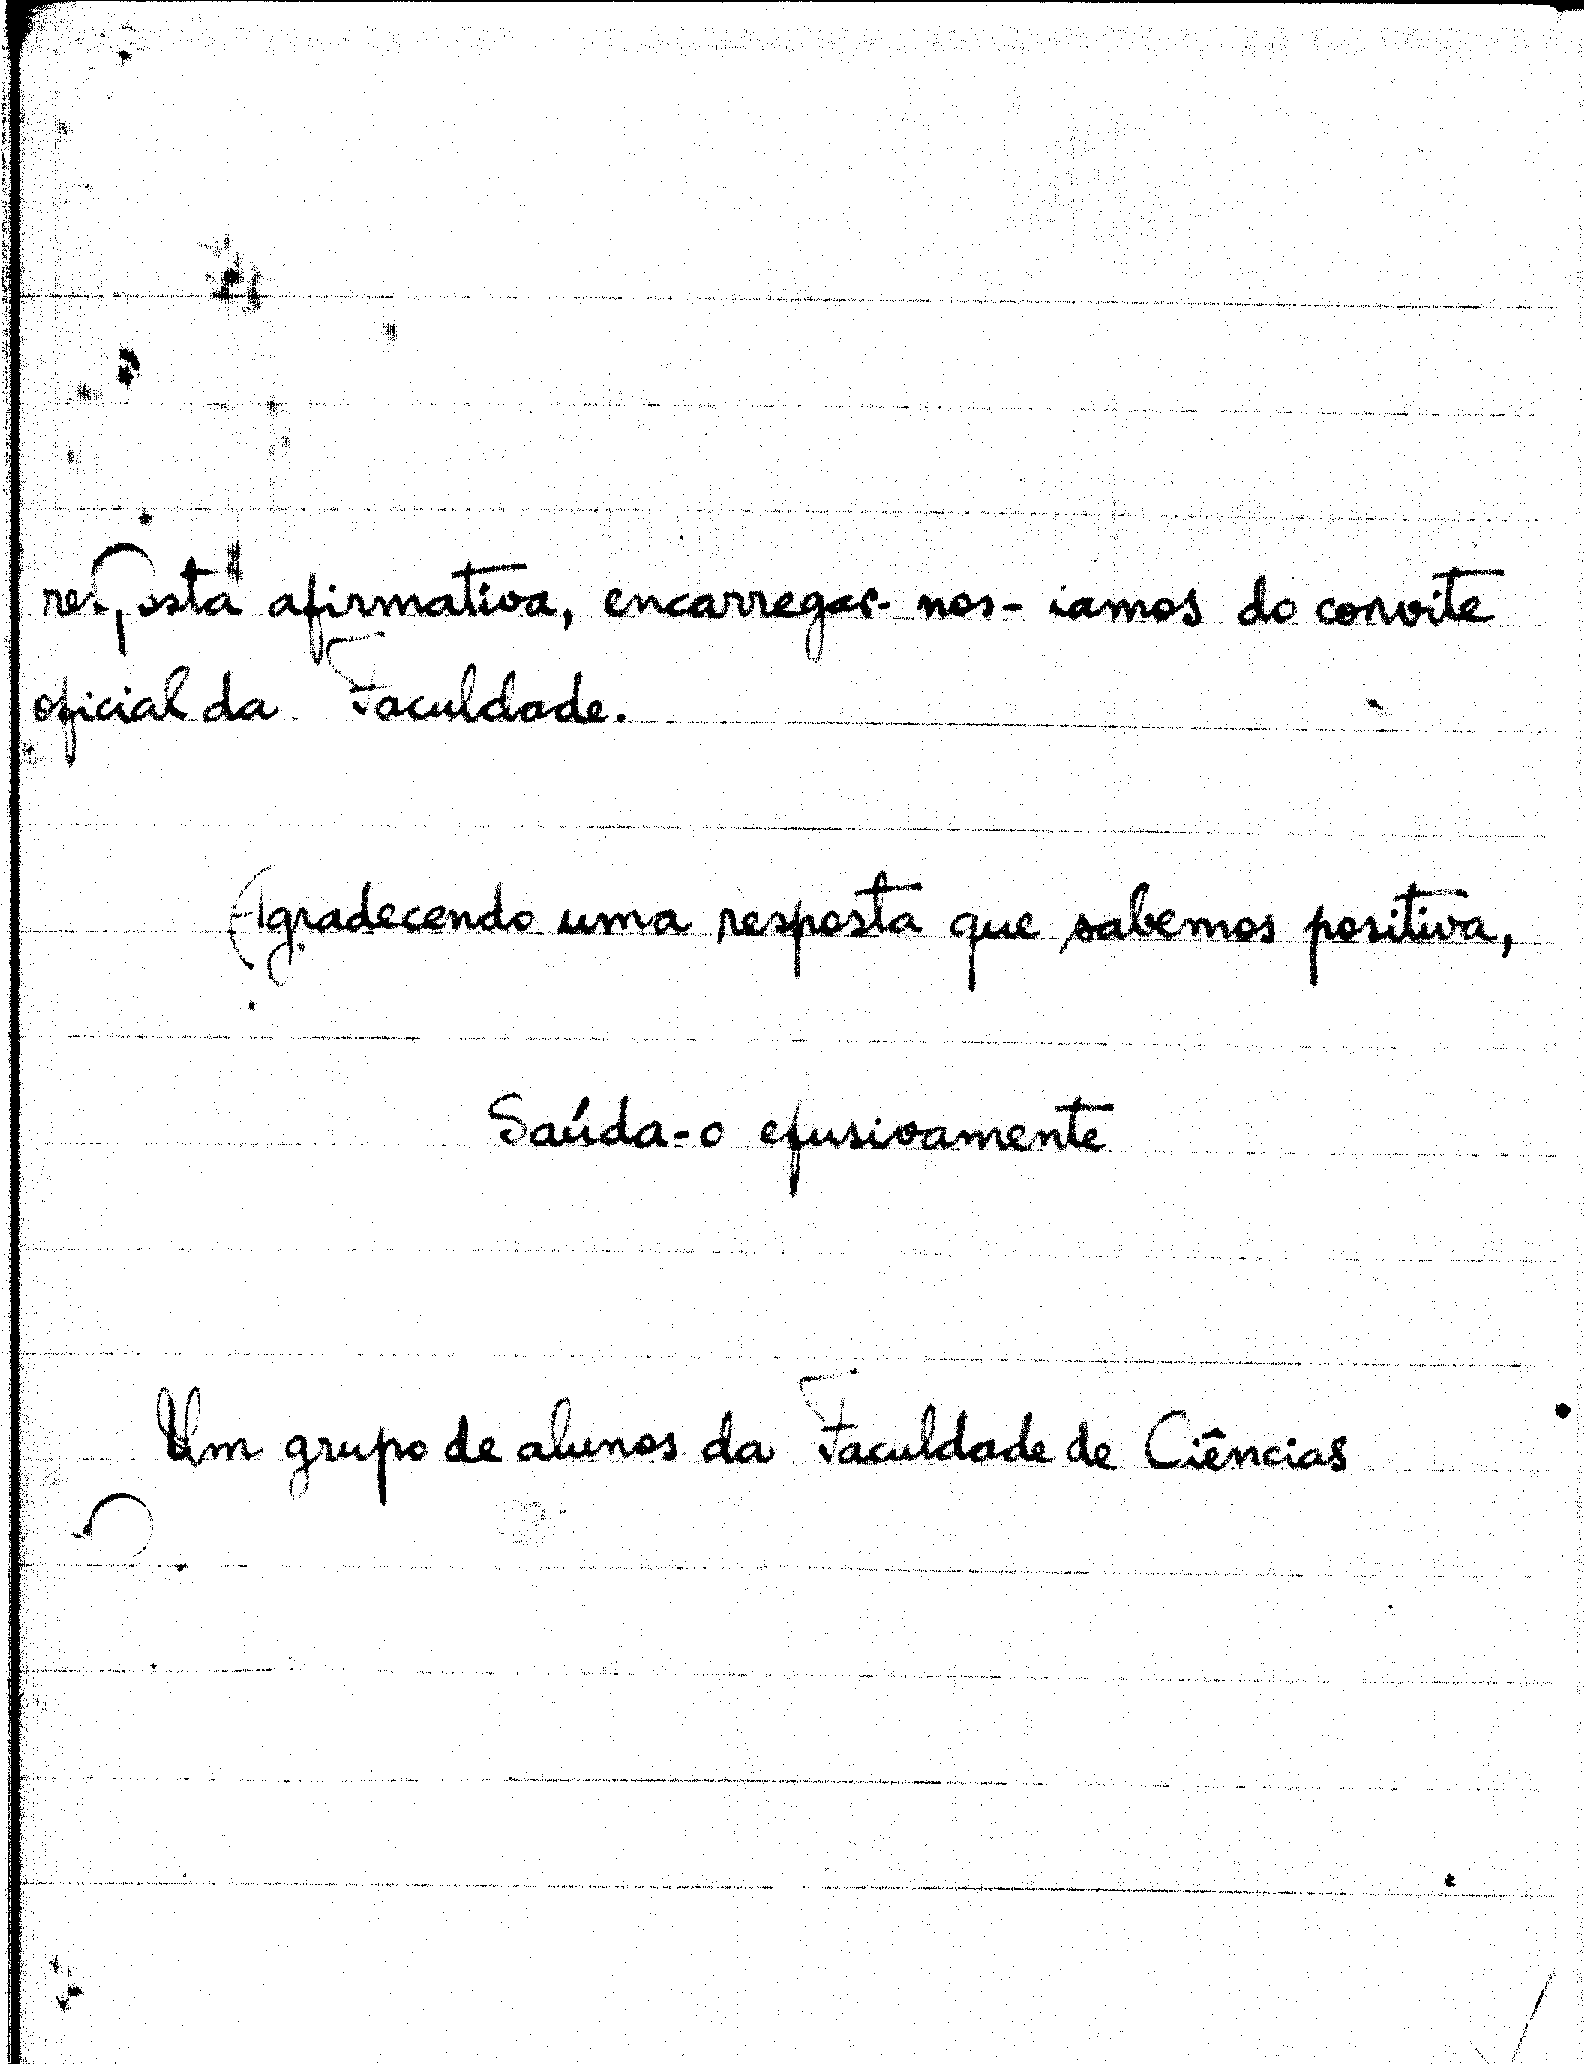 resposta afirmativa, encarregar-nos-iamos do convite
oficial da Faculdade.
Agradecendo uma resposta que sabemos positiva,
Saúda-o efusivamente
Um grupo de alunos da Faculdade de Ciências